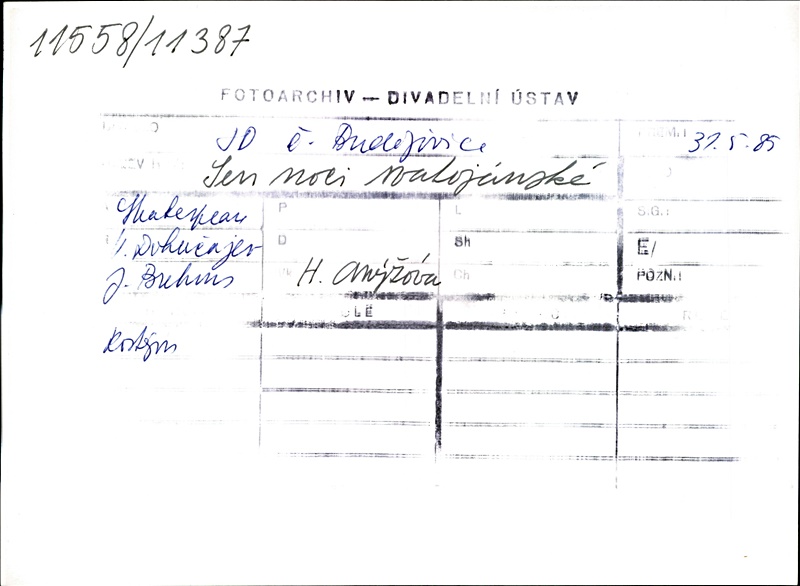 11558/11387
FOTOARCHIV — DIVADELNÍ ÚSTAV
JD Č. Budějovice 31.5.85
Sen noci svatojánské
P L S.G.
Shakespeare
D Sh E/
J. Brehms H. Anýžová Ch POZN.
Kostým